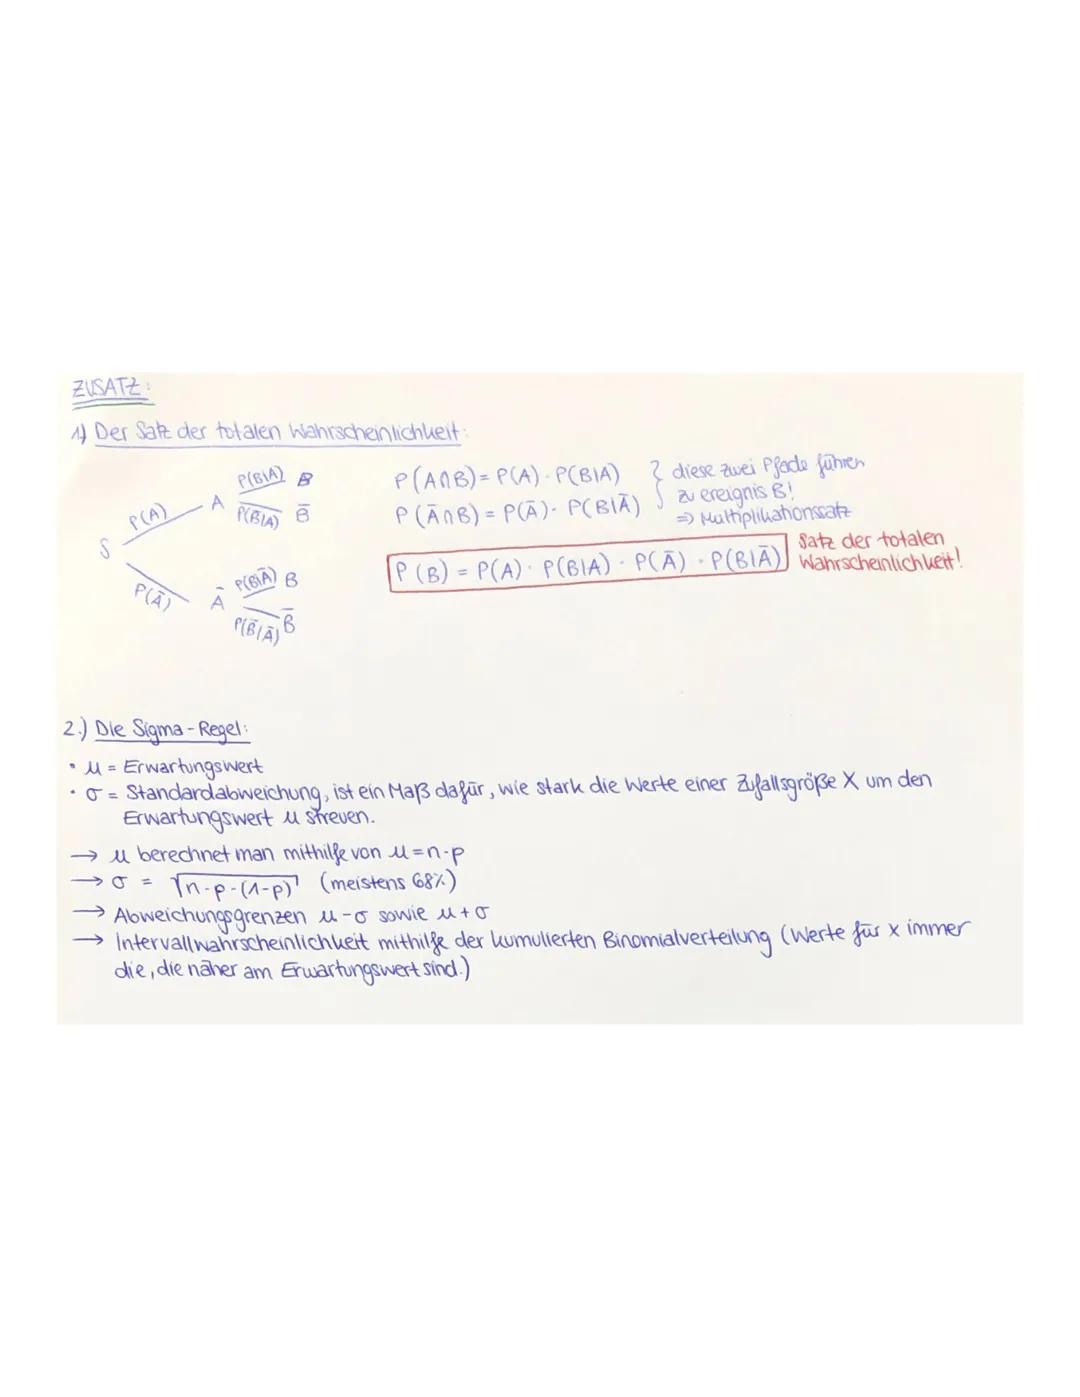 ZUSATZ:
1) Der Satz der totalen Wahrscheinlichkeit:
P(B|A) B
P(A) A P(B̄|A) B̄
S
P(Ā) Ā P(B|Ā) B
P(B̄|Ā) B̄
P(A∩B) = P(A) · P(B|A)
P(Ā∩B) = P(Ā) · P(B|Ā)
} diese zwei Pfade führen
zu ereignis B!
⇒ Multiplikationssatz
P(B) = P(A) · P(B|A) · P(Ā) · P(B|Ā)
Satz der totalen
Wahrscheinlichkeit!
2.) Die Sigma-Regel:
• μ = Erwartungswert
• σ = Standardabweichung, ist ein Maß dafür, wie stark die Werte einer Zufallsgröße X um den
Erwartungswert μ streuen.
→ μ berechnet man mithilfe von μ=n·p
→ σ = √n·p·(1-p) (meistens 68%)
→ Abweichungsgrenzen μ-σ sowie μ+σ
→ Intervallwahrscheinlichkeit mithilfe der kumulierten Binomialverteilung (Werte für x immer
die, die näher am Erwartungswert sind.)